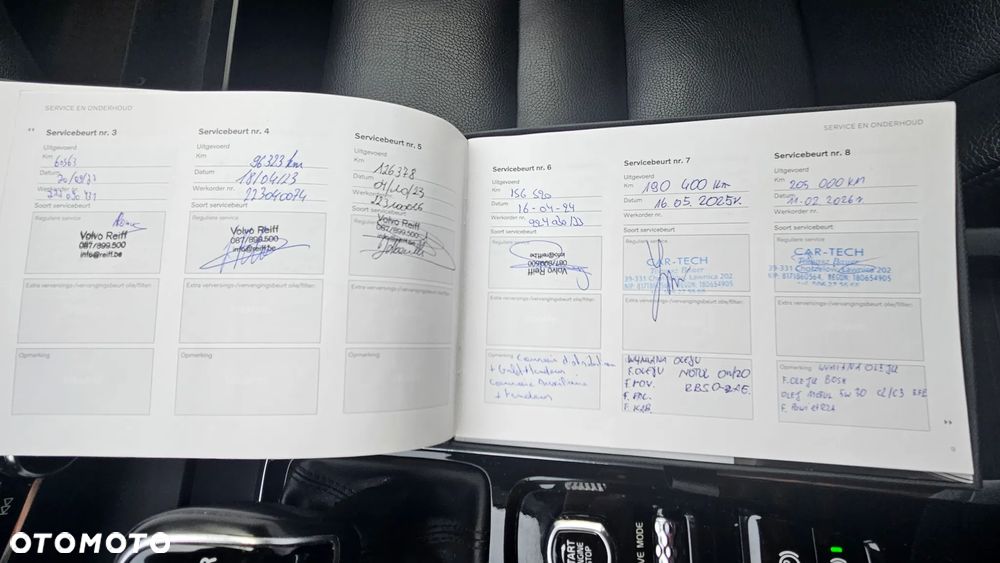 SERVICE EN ONDERHOUD
Servicebeurt nr. 3
Uitgevoerd
Km 60563
Datum
Werkorder nr.
Soort servicebeurt
Reguliere service
Volvo Reiff
087/899.500
info@reiff.be
Extra verversings-/vervangingsbeurt olie/filter:
Opmerking
Servicebeurt nr. 4
Uitgevoerd
Km 96323 km
Datum 18/04/23
Werkorder nr. 223040074
Soort servicebeurt
Reguliere service
Volvo Reiff
087/899.500
info@reiff.be
Extra verversings-/vervangingsbeurt olie/filter:
Opmerking
Servicebeurt nr. 5
Uitgevoerd
Km 126378
Datum 04/10/23
Werkorder nr.
Soort servicebeurt
Reguliere service
Volvo Reiff
087/899.500
Extra verversings-/vervangingsbeurt olie/filter:
Opmerking
SERVICE EN ONDERHOUD
Servicebeurt nr. 6
Uitgevoerd
Km 156 520
Datum 16-04-24
Werkorder nr.
Soort servicebeurt
Reguliere service
Volvo Reiff
087/899.500
info@reiff.be
Extra verversings-/vervangingsbeurt olie/filter:
Opmerking Courroie distribution
+ Galet + tendeur
Courroie Auxiliaire
+ tendeur
Servicebeurt nr. 7
Uitgevoerd
Km 190 400 Km
Datum 16 05. 2025r.
Werkorder nr.
Soort servicebeurt
Reguliere service
CAR-TECH
39-331 Chorzelów, Ławnica 202
NIP: 8171860564, REGON: 180654905
Extra verversings-/vervangingsbeurt olie/filter:
Opmerking WYMIANA OLEJU
F. OLEJU MOTUL 0W20
F. POW. RBS0-2AE.
F. PAL.
F. KAB.
Servicebeurt nr. 8
Uitgevoerd
Km 205 000 KM
Datum 11.02.2026r
Werkorder nr.
Soort servicebeurt
Reguliere service
CAR-TECH
39-331 Chorzelów, Ławnica 202
NIP: 8171860564, REGON: 180654905
Extra verversings-/vervangingsbeurt olie/filter:
Opmerking WYMIANA OLEJU
F. OLEJU BOSH
OLEJ MOTUL 5W30 C2/C3
F. POWIETRZA
9
START
ENGINE
STOP
VE MODE
OTOMOTO